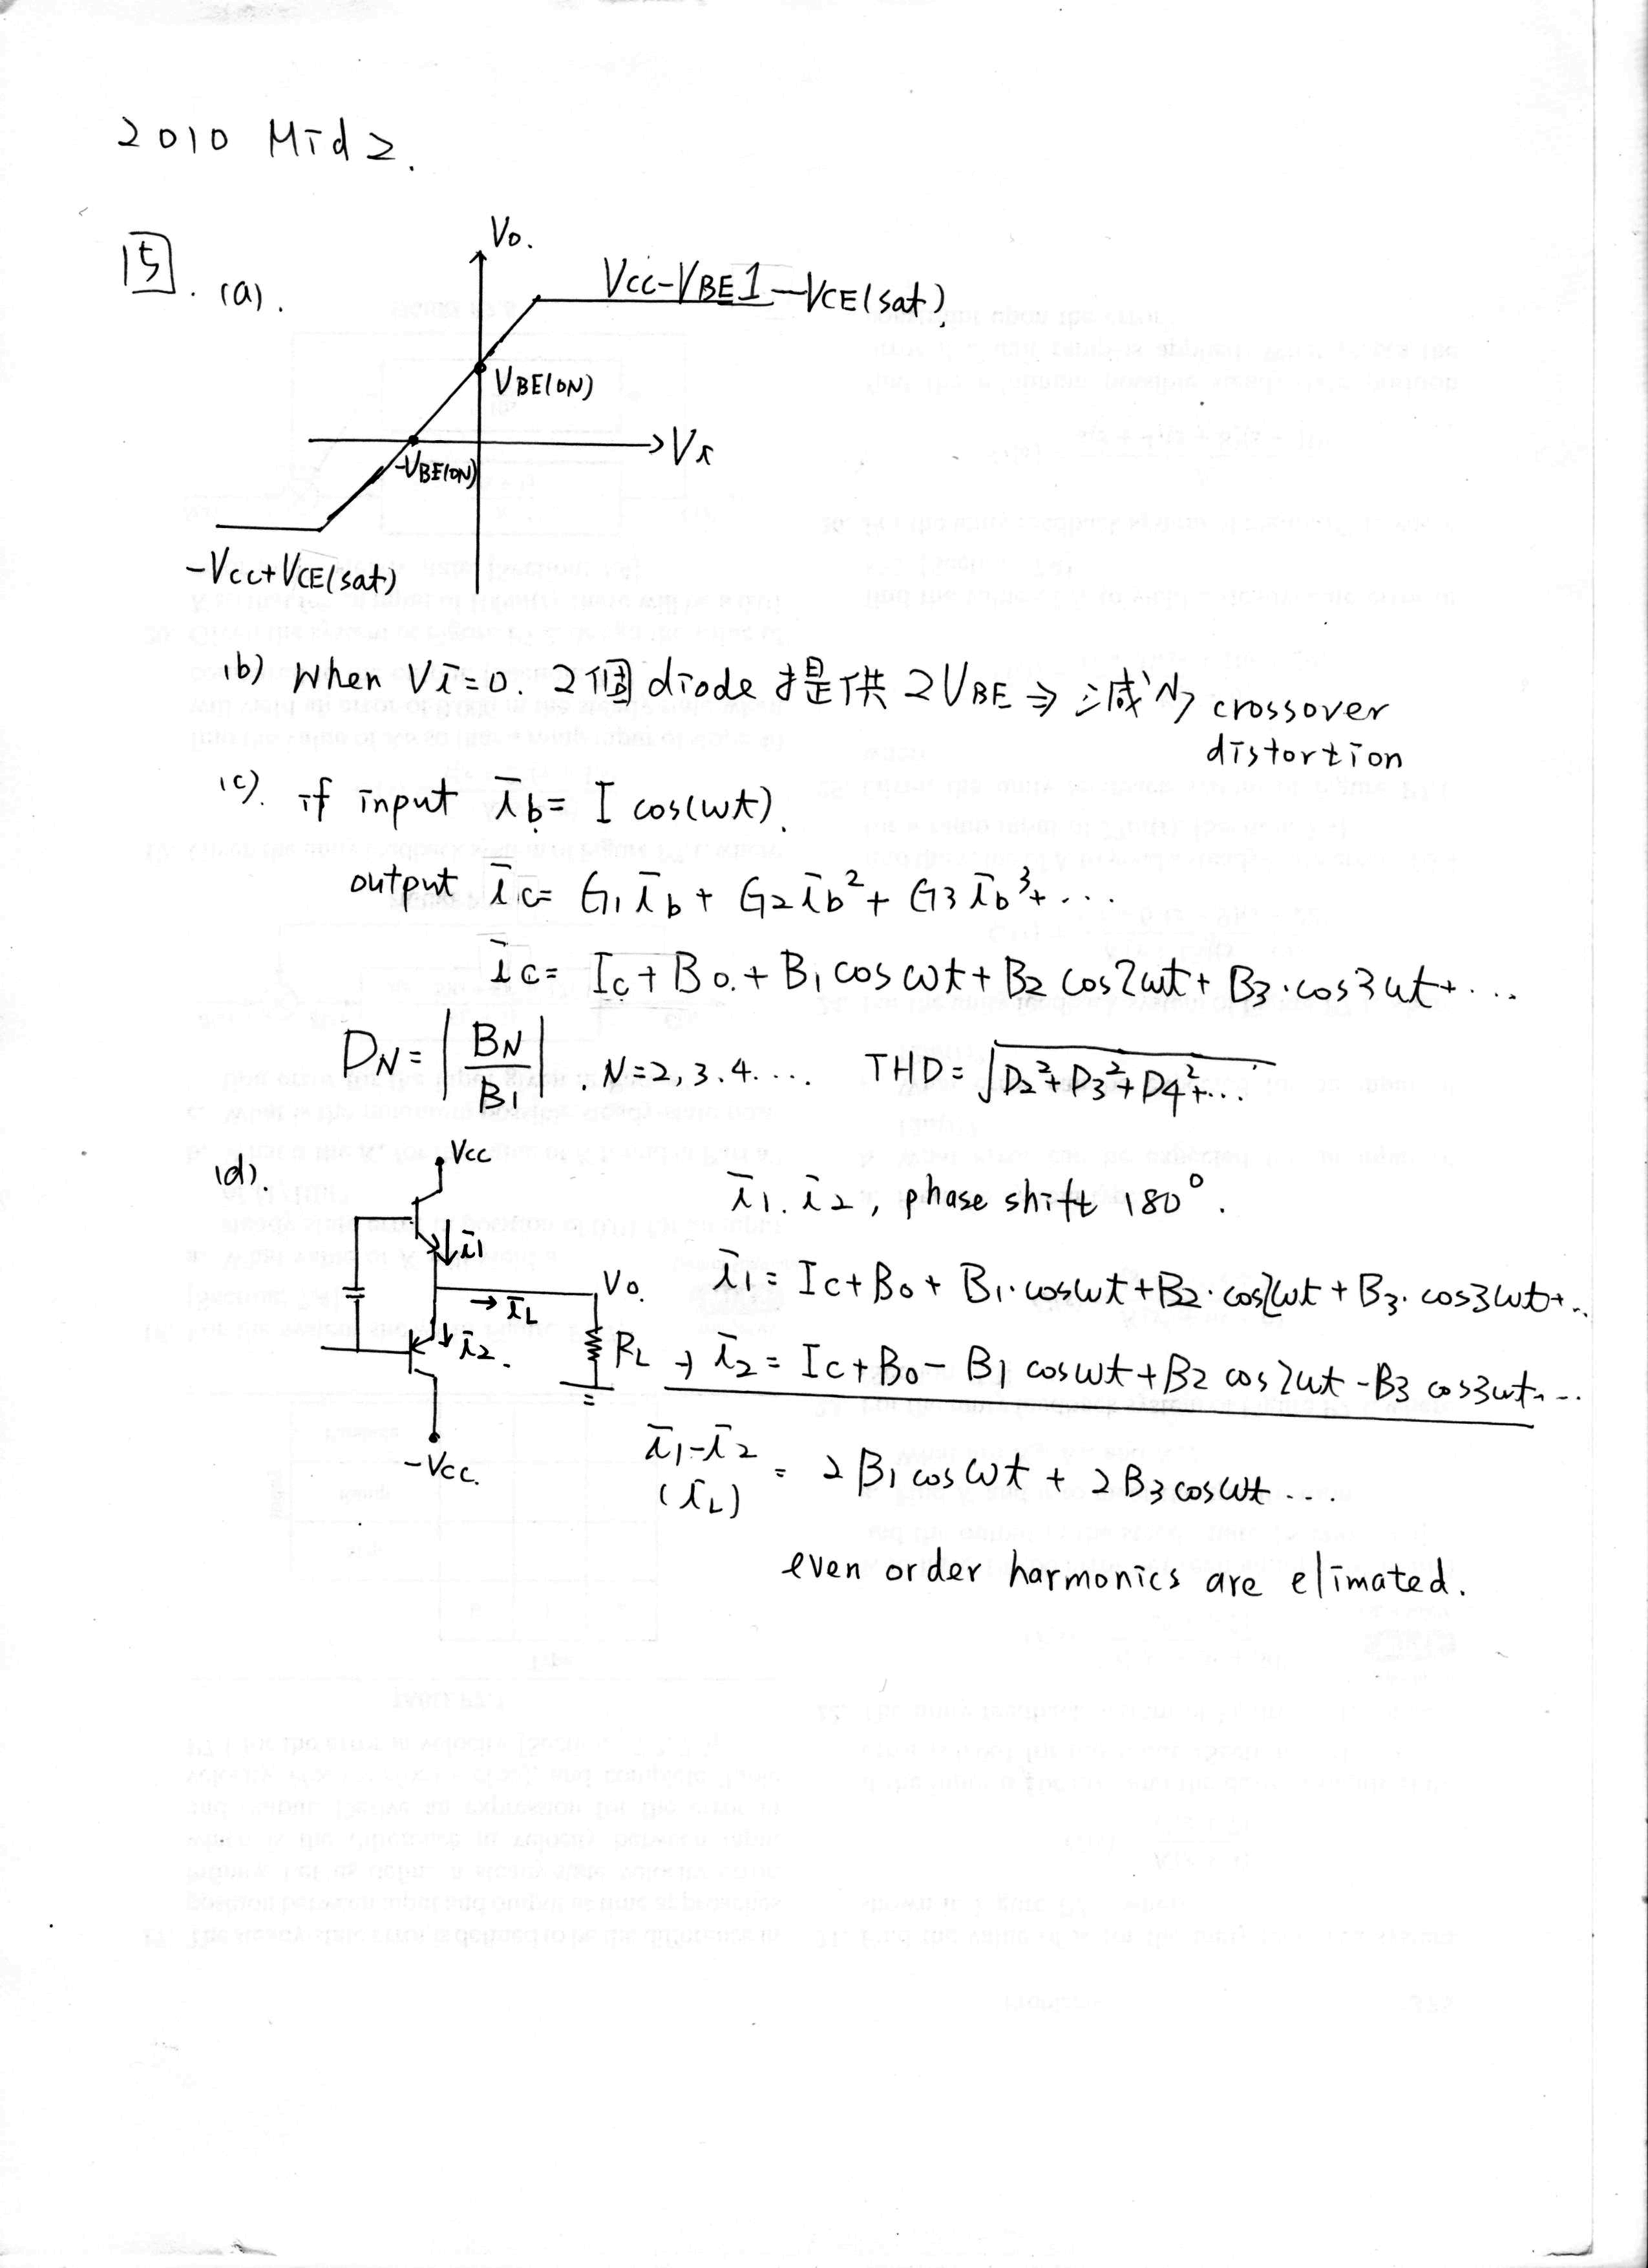 2010 Mid2.
15. (a).
Vo.
Vcc-VBE1-VCE(sat).
VBE(ON)
Vi
-VBE(ON)
-Vcc+VCE(sat)
(b) When Vi=0. 2個 diode 提供 2VBE ⇒ 減少 crossover
distortion
(c). if input ib= I cos(ωt).
output ic= G1 ib + G2 ib² + G3 ib³+ ...
ic= Ic + B0. + B1 cos ωt + B2 cos2ωt + B3·cos3ωt+ ...
DN= |BN/B1| . N=2,3.4.... THD= √(D2²+D3²+D4²+...)
(d). Vcc
i1. i2, phase shift 180°.
i1
Vo.
i1= Ic+B0 + B1·cosωt+B2·cos2ωt + B3·cos3ωt+..
→ iL
i2.
RL
→ i2= Ic+B0 - B1 cosωt+B2 cos2ωt -B3 cos3ωt...
-Vcc.
i1-i2 = 2B1 cosωt + 2B3 cosωt...
(iL)
even order harmonics are elimated.